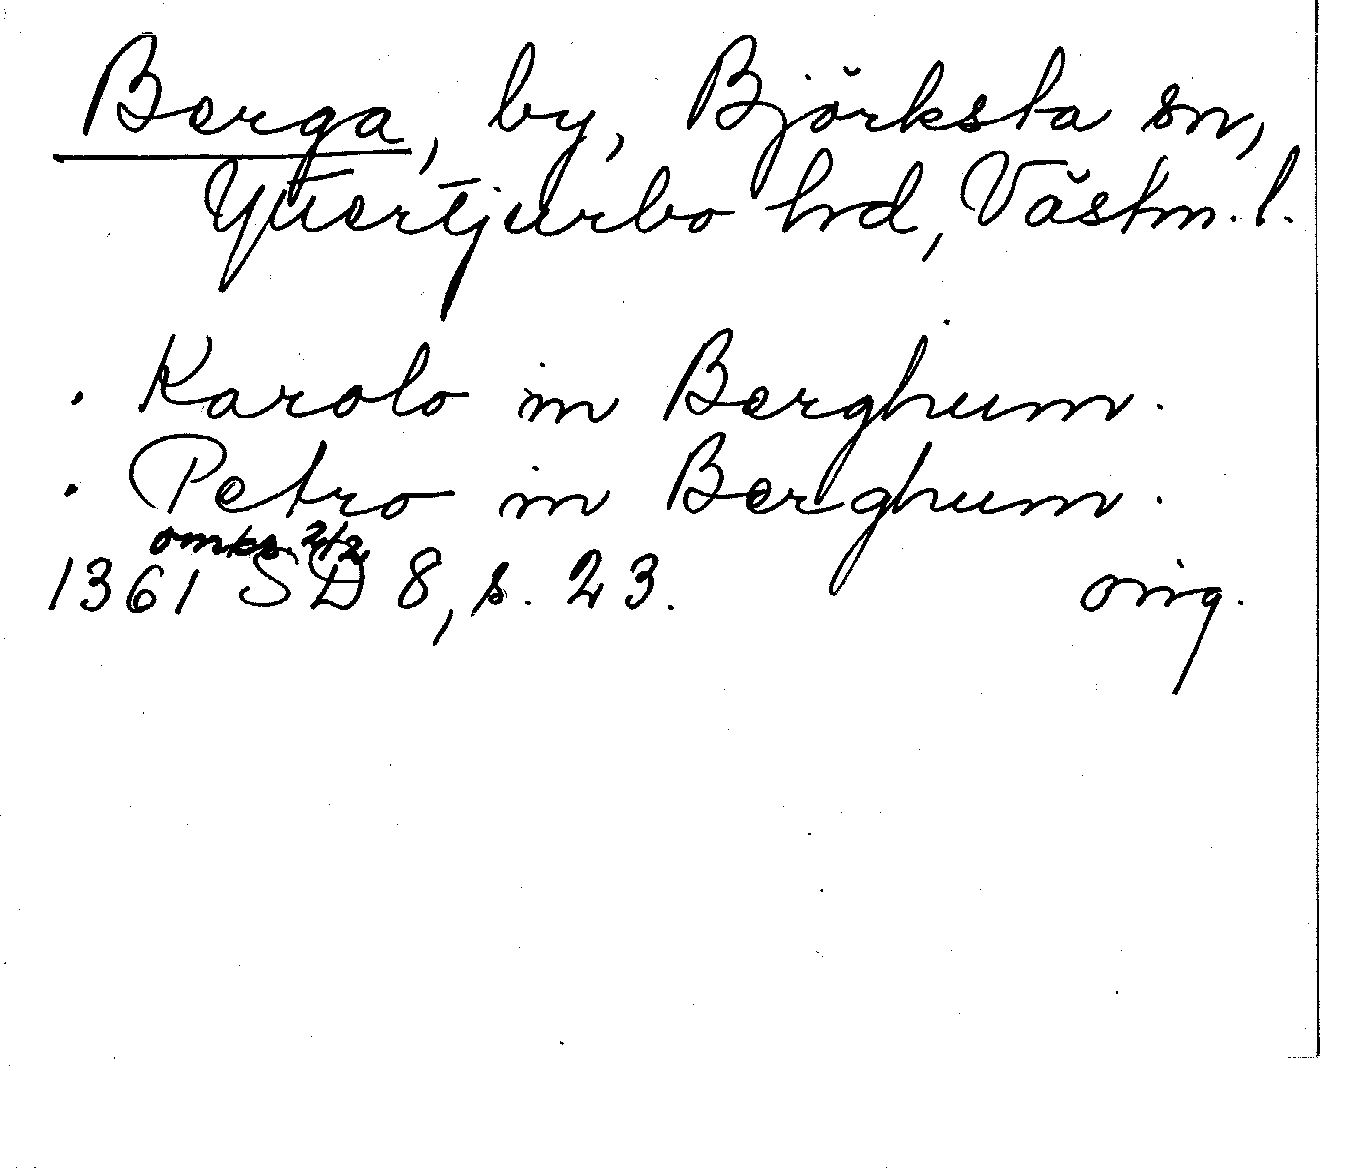 Berga, by, Björksta sn,
Yttertjurbo hrd, Västm. l.
. Karolo in Berghum.
. Petro in Berghum.
omkr. 2/2
1361 SD 8, s. 23. orig.